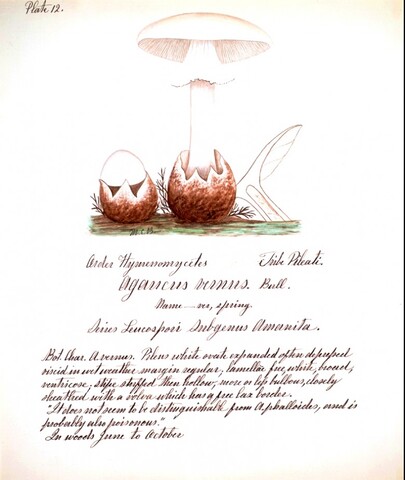 Plate 12.
M. E. B.
Order Hymenomycetes Tribe Pileati.
Agaricus vernus. Bull.
Name — ver, spring.
Series Leucospori Subgenus Amanita.
Bot. Char. A. vernus. Pileus white ovate expanded often depressed
viscid in wet weather margin regular, lamellae free, white, broad,
ventricose; stipe stuffed then hollow, more or less bulbous, closely
sheathed with a volva which has a free lax border.
"It does not seem to be distinguishable from A. phalloides, and is
probably also poisonous."
In woods June to October